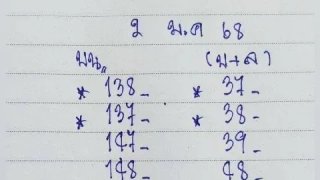 2 ม.ค 68
บน,, (บ+ล)
* 138- * 37-
* 137- * 38-
147- 39-
148- 48-